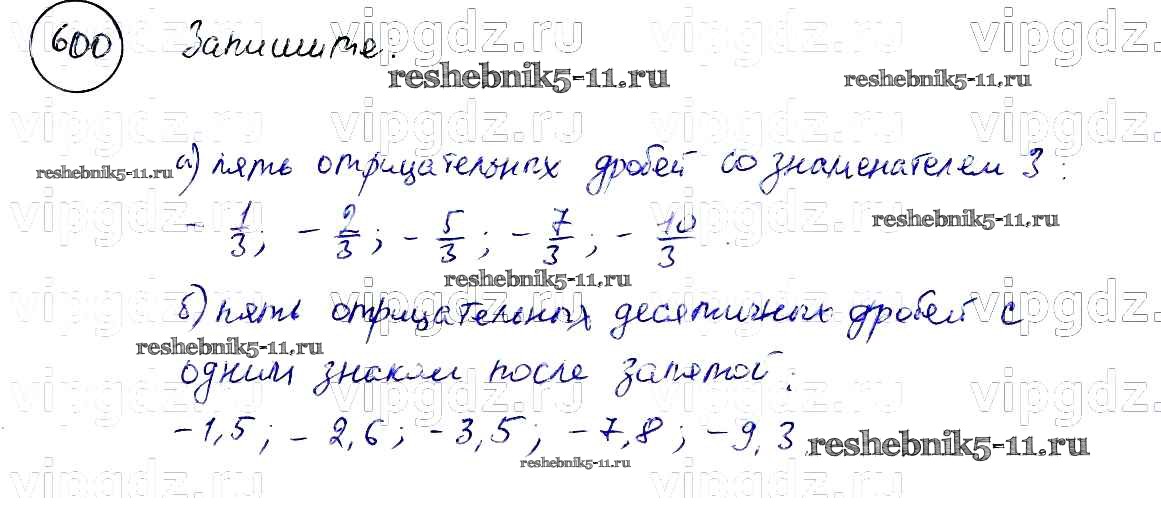 600 Запишите.
vipgdz.ru vipgdz.ru vipgdz.ru vipgdz.ru
reshebnik5-11.ru reshebnik5-11.ru
vipgdz.ru vipgdz.ru vipgdz.ru vipgdz.ru
а) пять отрицательных дробей со знаменателем 3:
reshebnik5-11.ru
vipgdz.ru vipgdz.ru vipgdz.ru vipgdz.ru
- 1/3; - 2/3; - 5/3; - 7/3; - 10/3
reshebnik5-11.ru
reshebnik5-11.ru
б) пять отрицательных десятичных дробей с
vipgdz.ru vipgdz.ru vipgdz.ru vipgdz.ru
reshebnik5-11.ru
одним знаком после запятой:
vipgdz.ru vipgdz.ru vipgdz.ru vipgdz.ru
-1,5; - 2,6; -3,5; -7,8; -9,3
reshebnik5-11.ru
reshebnik5-11.ru
vipgdz.ru vipgdz.ru vipgdz.ru vipgdz.ru